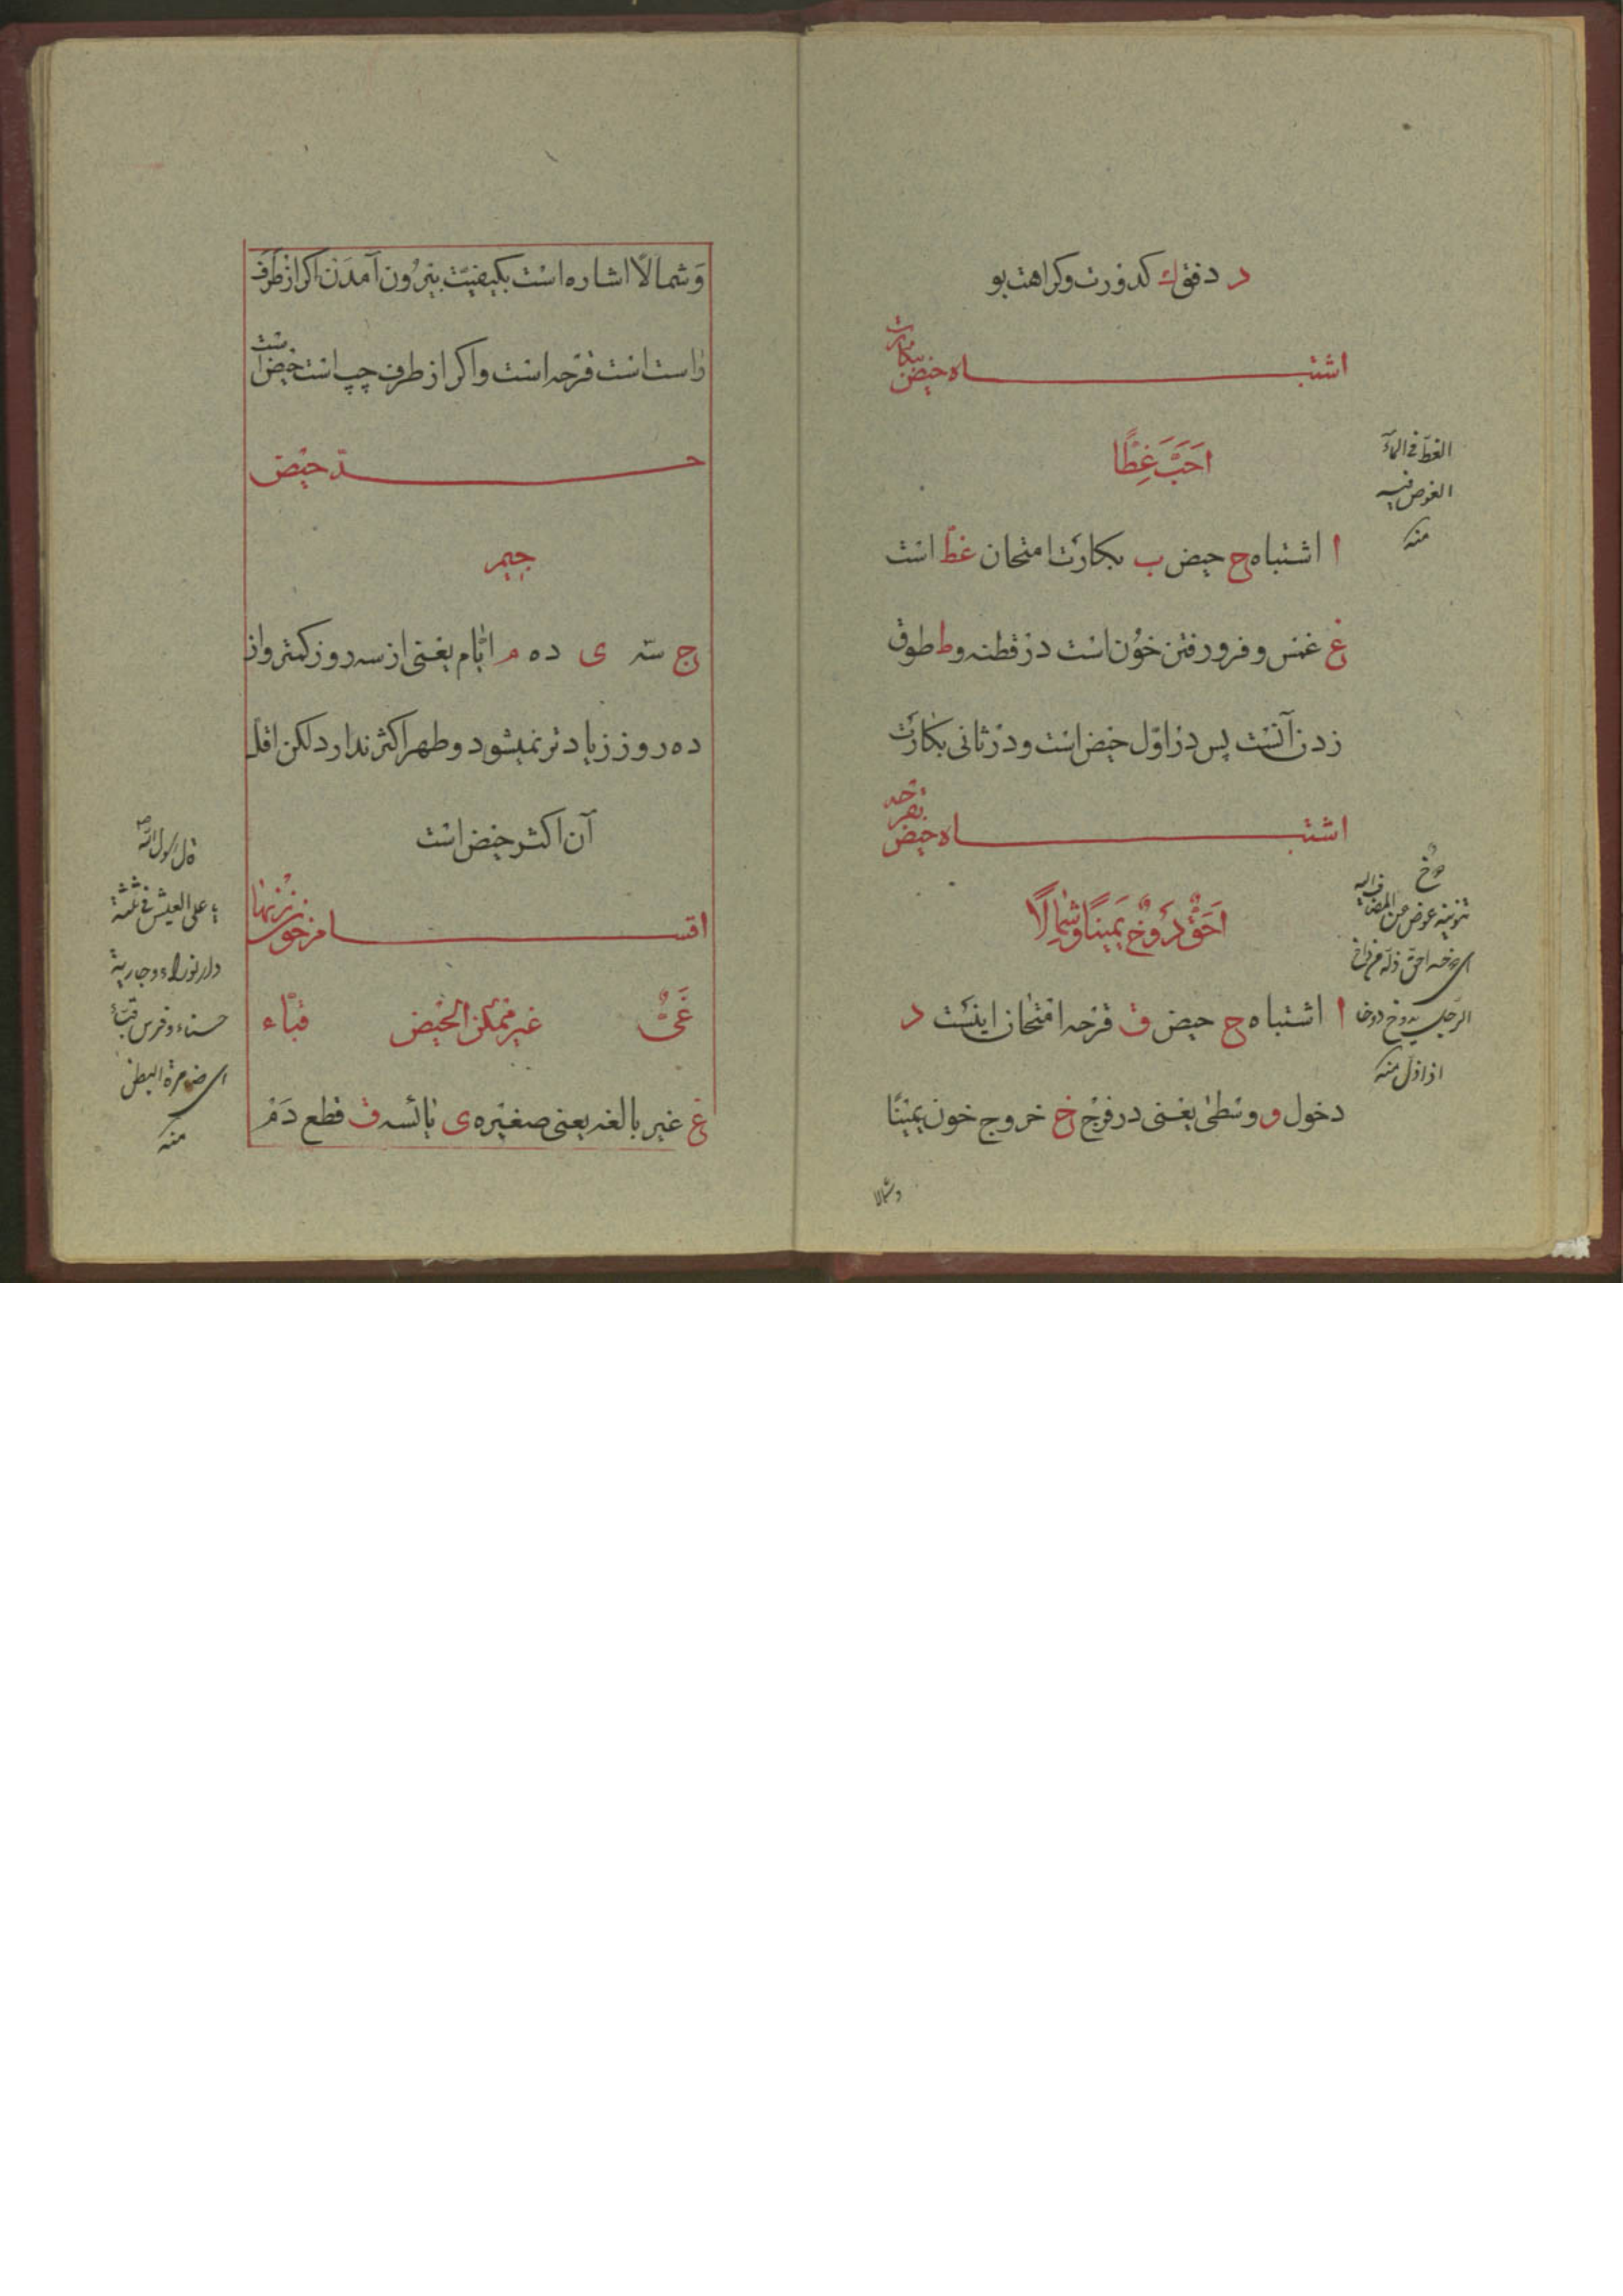 د دفق ك كدورت وكراهت بو
اشتباه حيض ببكارت
احَبَّ غِطًّا
ا اشتباه ح حيض ب بكارت امتحان غطّ است
غ غمس و فرو رفتن خون است در قطنه و ط طوق
زدن آنست پس در اوّل حيض است و در ثانى بكارت
اشتباه حيض بقرحه
احَقٌّ دَوٌخ يَمينًا وشمالًا
ا اشتباه ح حيض ق قرحه امتحان اينست د
دخول و وسطى يعنى در فرج خ خروج خون يمينًا
وشمالا
الغطّ فى الماء
الغوص فيه
منه
دوخ
تنوينه عوض عن المضاف اليه
الرجل يدوخ دوخا
اذا ذلّ منه
وَشمالًا اشاره است بكيفيّت بيرون آمدن اكر از طرف
راست است قرحه است و اكر از طرف چپ است حيض است
حدّ حيض
جيم
ج سه ى ده م ايّام يعنى از سه روز كمتر و از
ده روز زيادتر نميشود و طهر اكثر ندارد لكن اقل
آن اكثر حيض است
اقسام خون زنها
غَىٌّ غير ممكن الحيض قبّاء
غ غير بالغه يعنى صغيره ى يائسه ق قطع دَم
قال رسول الله ص
يا على العيش فى ثلثة
دار قوراء و جارية
حسناء و فرس قبّاء
اى ضامرة البطن
منه